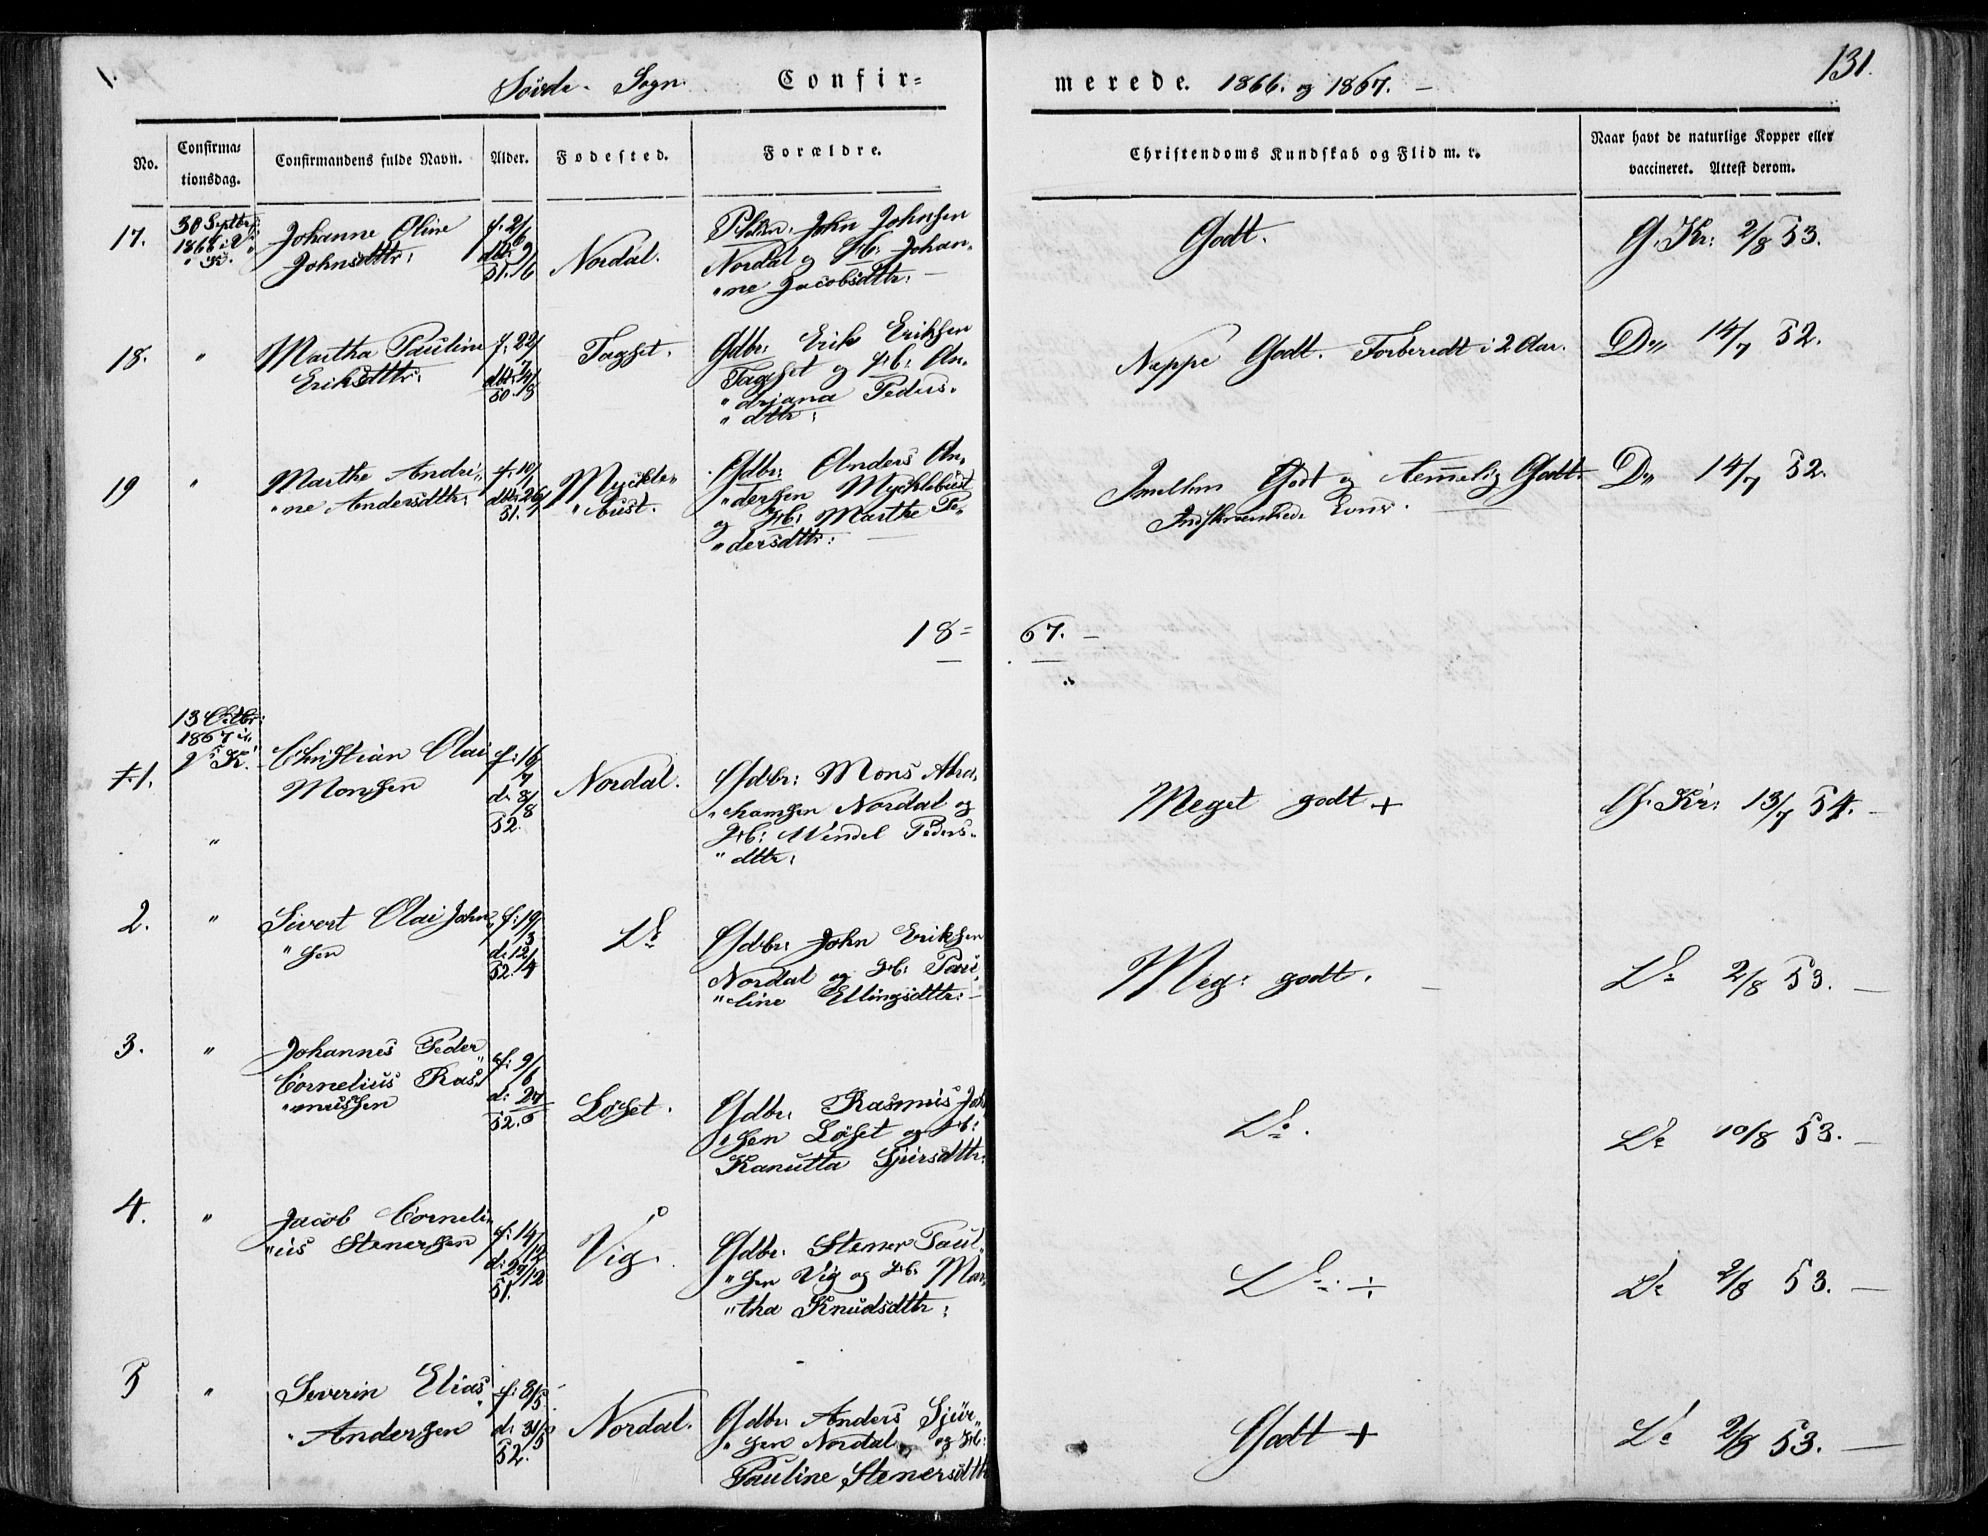 Søvde Sogn. Confir= merede. 1866. og 1867. – 131.
No. Confirma= tionsdag. Confirmandens fulde Navn. Alder. Fødested. Forældre. Christendoms Kundskab og Flid m. v. Naar havt de naturlige Kopper eller vaccineret. Attest derom.
17. 30 Septbr:
1866 i V
" K.
Johanne Oline
Johnsdttr:
f: 2/6
dbt: 9/6
51.
Nordal.
John Johnsen
Nordal og Hb: Johan„
"ne Jacobsdttr:
Godt.
G. Kr: 2/8 53.
18. "
Martha Pauline
Eriksdttr:
f: 22/
50.
Tagset.
Gdbr: Erik Eriksen
Tagset og Hb: An„
"driana Peders„
"dttr:
Neppe Godt. Forberedt i 2 Aar.
D„ 14/7 52.
19 "
Marthe Andri„
"ne Andersdttr:
f: 10/
dbt: 26/
51.
Myckle„
"bust.
Gdbr: Anders An„
"dersen Mycklebust
og Hb: Marthe Pe„
"dersdttr:
Imellem Godt og temmelig Godt.
Indskrænkede Evner.
D„ 14/7 52.
18= 67. –
1. 13 Octbr:
1867 i
V. K.
"
Christian Olai
Monsen
f: 16/7
d: 8/8
52.
Nordal.
Gdbr: Mons Abra„
"hamsen Nordal og
Hb: Wendel Peders„
"dttr:
Meget godt +
G. Kr: 13/7 54. –
2. "
Sivert Olai John„
"sen
f: 19/3
d: 12/4
52.
Do
Gdbr: John Eriksen
Nordal og Hb: Pau„
"line Ellingsdttr: –
Meg: godt. –
Do 2/8 53. –
3. "
Johannes Peder
Cornelius Ras„
"mussen
f: 9/6
d: 27/6
52.
Løset.
Gdbr: Rasmus
"sen Løset og Hb:
Kanutta Sjursdttr:
Do.
Do 10/8 53. –
4. "
Jacob Corneli„
"us Stenersen
f: 14/12
d: 27/12
51.
Vig.
Gdbr: Stener Paul„
"sen Vig og Hb: Mar„
"tha Knudsdttr:
Do. ÷
Do 2/8 53. –
5 "
Severin Elias
Andersen
f: 8/5
d: 31/5
52.
Nordal.
Gdbr: Anders Sjur„
"sen Nordal og Hb:
Pauline Stenersdttr
Godt +
Do 2/8 53. –